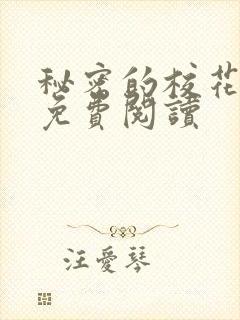 秘密的校花
免費閱讀
汪愛琴